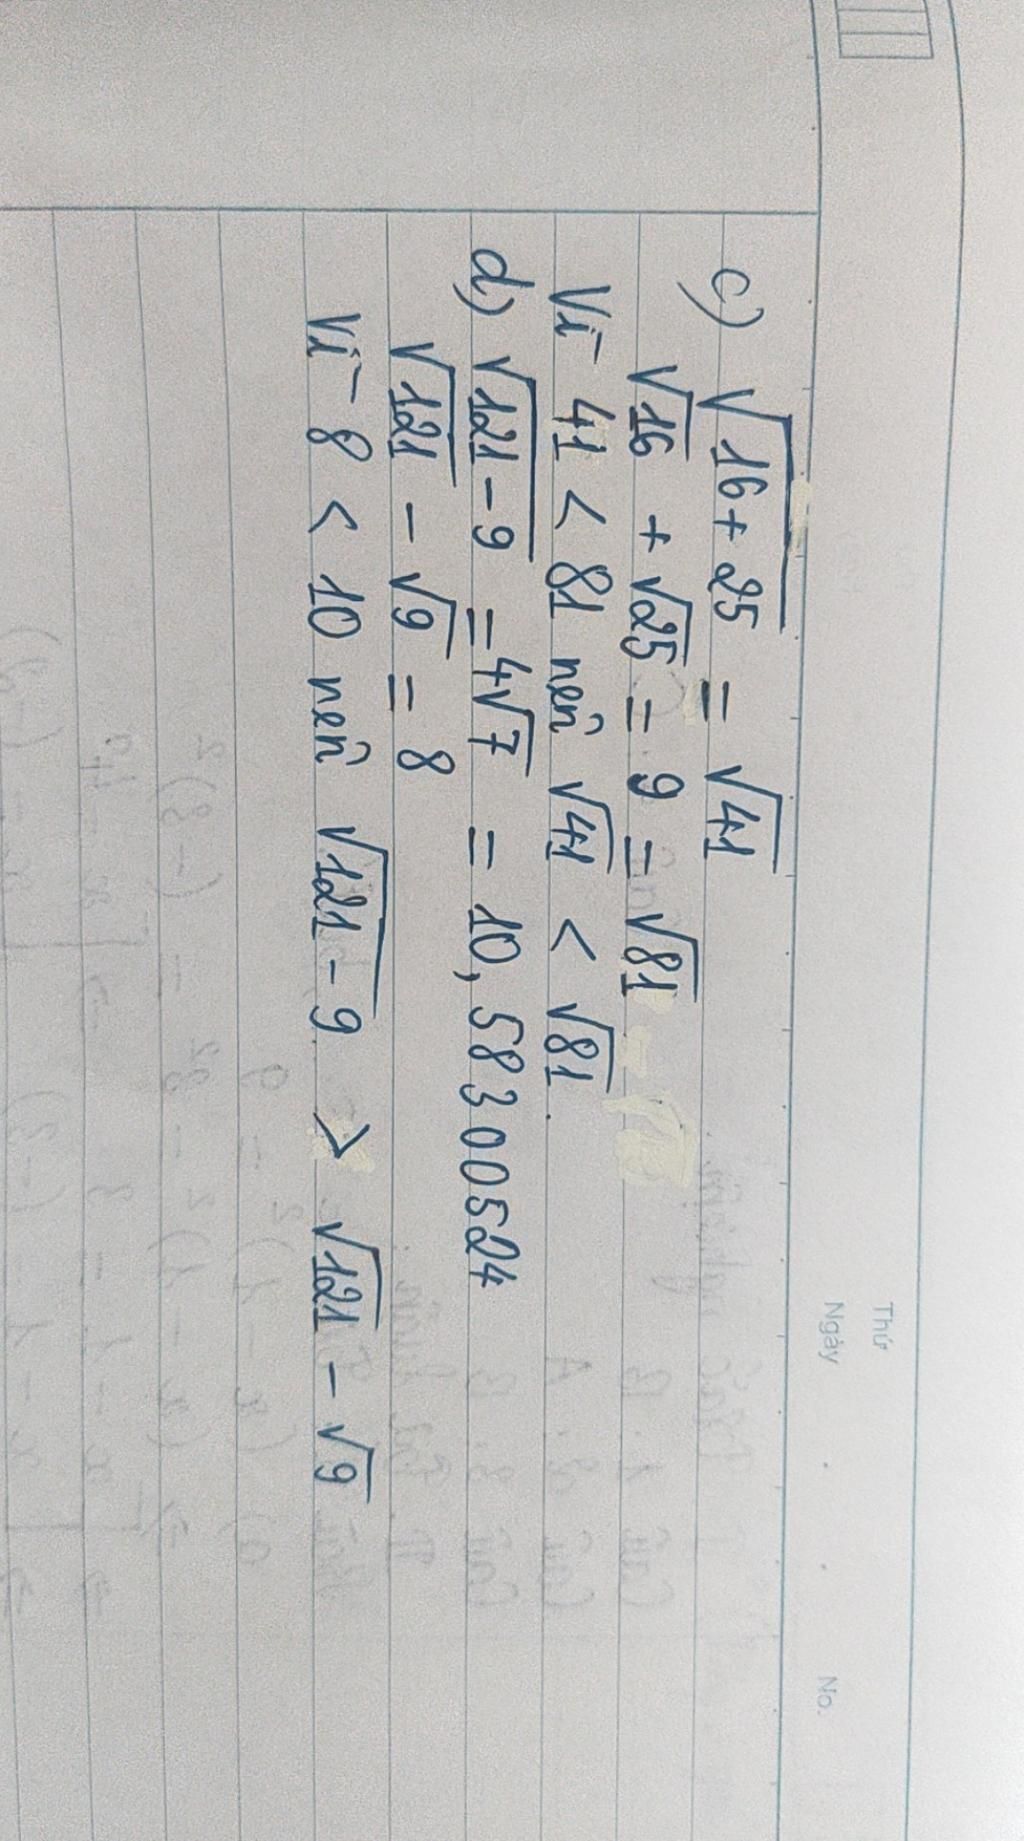 Thứ
Ngày
No.
c) √(16+25) = √41
√16 + √25 = 9 = √81
Vì 41 < 81 nên √41 < √81.
d) √(121-9) = 4√7 = 10,58300524
√121 - √9 = 8
Vì 8 < 10 nên √(121-9) > √121 - √9